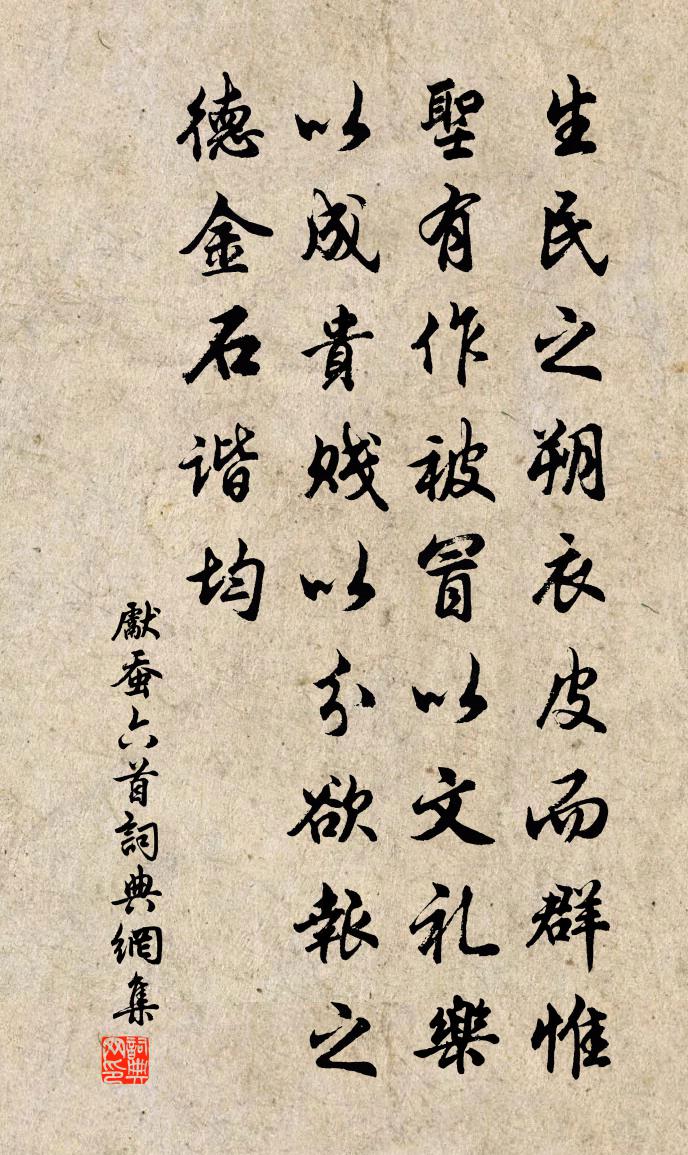 生民之朔衣皮而群惟
聖有作被冒以文礼樂
以成貴賤以分欲報之
德金石谐均
獻蚕六首詞典網集
詞典网印